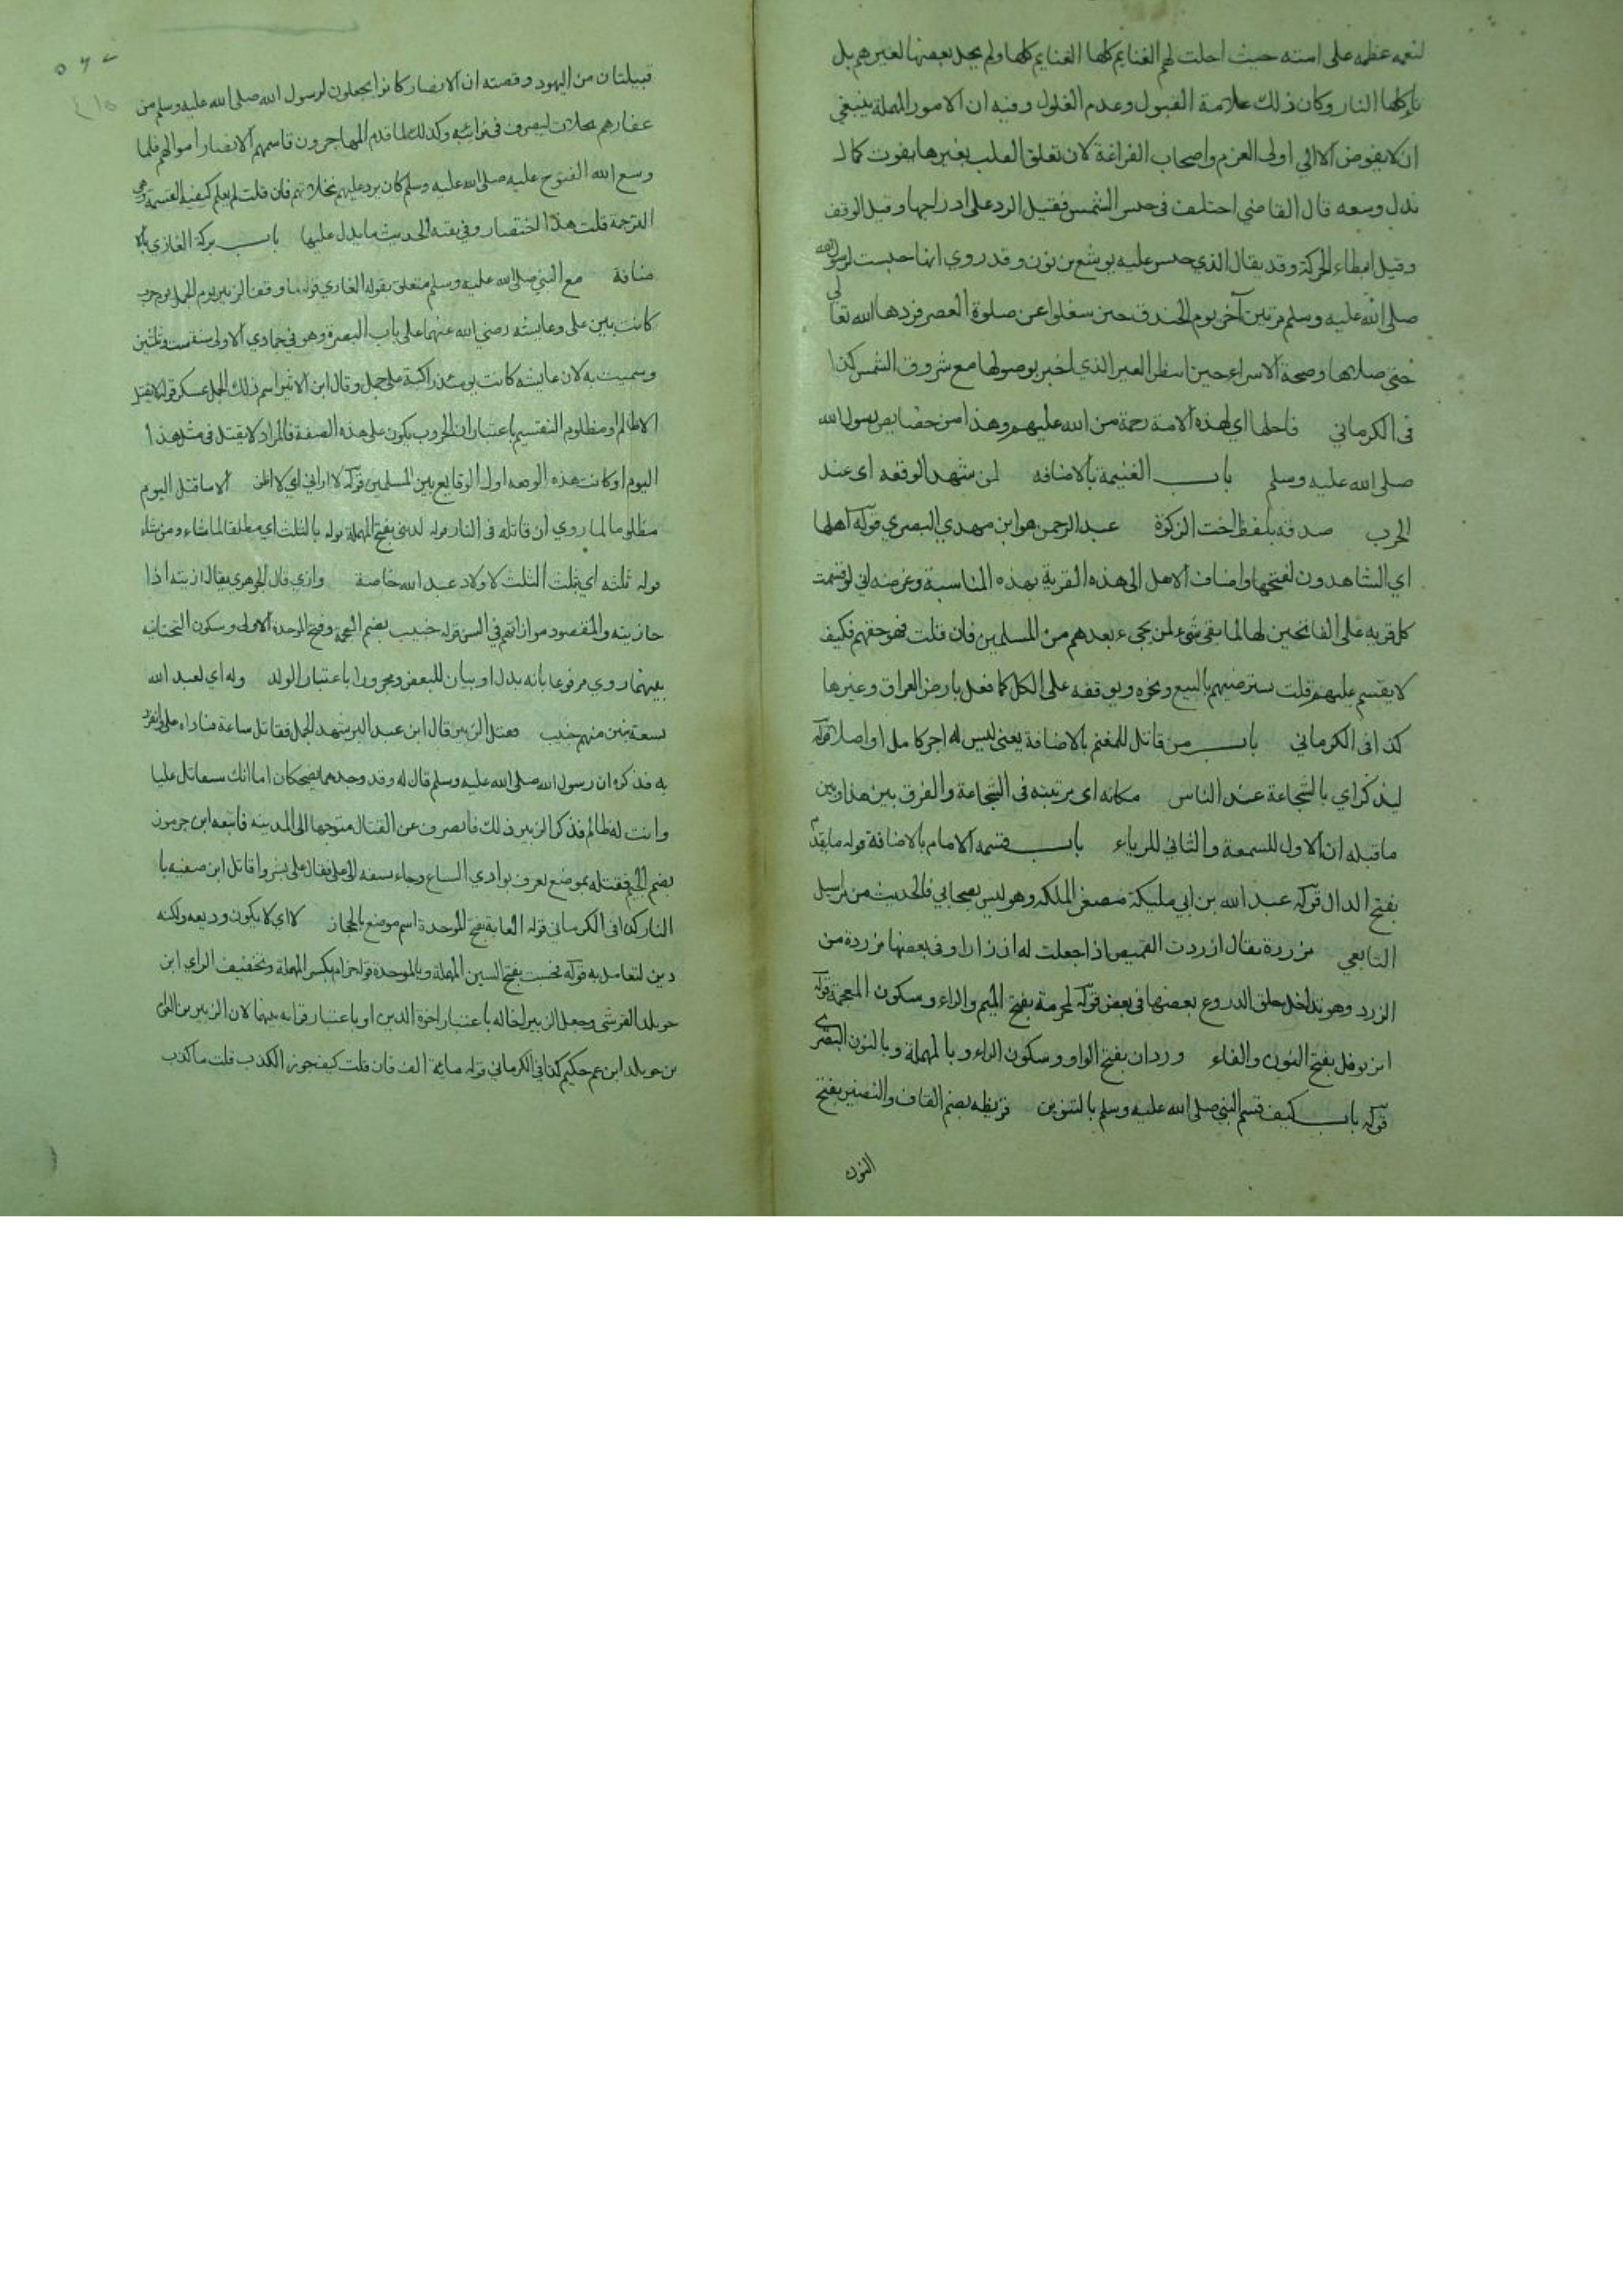 لنعمه عظمه على امته حيث احلت لهم الغنايم كلها الغنايم كلها ولم يحل بعضها لغيرهم بل
تأكلها النار وكان ذلك علامة القبول وعدم الغلول وفيه ان الامور المهملة ينبغي
ان لا يفوض الا الي اولى العزم واصحاب الفراغة لان تعلق القلب بغيرها يفوت كمال
بذل وسعه قال القاضي اختلف في حبس الشمس فقيل الرد على ادراجها وقيل الوقف
وقيل ابطاء الحركة وقد يقال الذي حبس عليه يوشع بن نون وقد روي انها حبست لرسول الله
صلى الله عليه وسلم مرتين آخر يوم الخندق حين شغلوا عن صلوة العصر فردها الله تعالي
حتى صلاها وصحة الاسراء حين انتظر العير الذي اخبر بوصولها مع شروق الشمس كذا
فى الكرماني فاحلها اي لهذه الامة رحمة من الله عليهم وهذا من خصايص رسول الله
صلى الله عليه وسلم باب الغنيمة بالاضافه لمن شهد الوقعه اى عند
الحرب صدقه بلفظ اخت الزكوة عبد الرحمن هو ابن مهدي البصري قوله اهلها
اي الشاهدون لفتحها واضاف الاهل الى هذه القرية بهذه المناسبة وغرضه اني لو قسمت
كل قريه على الفاتحين لها لما بقى شىء لمن يجىء بعدهم من المسلمين فان قلت فهو حقهم فكيف
لا يقسم عليهم قلت يسترضيهم بالبيع ونحوه ويوقفه على الكل كما فعل بارض العراق وغيرها
كذا فى الكرماني باب من قاتل للمغنم بالاضافة يعنى ليس له اجر كامل او اصلا قوله
ليذكر اي بالشجاعة عند الناس مكانه اى مرتبته فى الشجاعة والفرق بين هذا وبين
ما قبله ان الاول للسمعة والثاني للرياء باب قسمه الامام بالاضافة قوله ما يقدم
بفتح الدال قوله عبد الله بن ابي مليكة مصغر الملكه وهو ليس بصحابي فالحديث من مراسيل
التابعي مزررة يقال ازررت القميص اذا جعلت له ازرارا وفى بعضها مزردة من
الزرد وهو تداخل حلق الدروع بعضها فى بعض قوله لمخرمة بفتح الميم والراء وسكون المعجمة قوله
ابن نوفل بفتح النون والفاء وردان بفتح الواو وسكون الراء وبالمهملة وبالنون البصرى
قوله باب كيف قسم النبي صلى الله عليه وسلم بالتنوين قريظه بضم القاف والنضير بفتح
النون
قبيلتان من اليهود وقصته ان الانصار كانوا يجعلون لرسول الله صلى الله عليه وسلم من
عقارهم نخلات ليصرف في نوائبه وكذلك لما قدم المهاجرون قاسمهم الانصار اموالهم فلما
وسع الله الفتوح عليه صلى الله عليه وسلم كان يرد عليهم نخلاتهم فان قلت لم يعلم كيفية القسمة وهى
الترجمة قلت هذا اختصار وفي بقية الحديث ما يدل عليها باب بركة الغازي بالا
ضافة مع النبي صلى الله عليه وسلم متعلق بقوله الغازي قوله لما وقف الزبير يوم الجمل يوم حرب
كانت بين على وعايشه رضي الله عنهما على باب البصرة وهو في جمادي الاولى سنة ست وثلثين
وسميت به لان عايشه كانت يومئذ راكبة على جمل وقال ابن الاثير اسم ذلك الجمل عسكر قوله لا يقتل
الا ظالم او مظلوم التقسيم باعتبار ان الحروب يكون على هذه الصفة فالمراد لا يقتل فى مثل هذا
اليوم او كانت هذه الوقعه اول الوقايع بين المسلمين قوله لا اراني اي لا اظن الا ساقتل اليوم
مظلوما لما روي ان قاتله فى النار قوله لديني بفتح المهملة قوله بالثلث اي مطلقا لما شاء ومن شاء
قوله ثلثه اي بثلث الثلث لاولاد عبد الله خاصة وازي قال الجوهري يقال ازيته اذا
حاذيته والمقصود موازاتهم في السن قوله خبيب بضم المعجمة وفتح الموحدة الاولى وسكون التحتانية
بينهما روي مرفوعا بانه بدل او بيان للبعض ومجرورا باعتبار الولد وله اي لعبد الله
تسعة بنين منهم خبيب فقتل الزبير قال ابن عبد البر شهد الجمل فقاتل ساعة فناداه على وانفرد
به فذكره ان رسول الله صلى الله عليه وسلم قال له وقد وجدهما يضحكان اما انك ستقاتل عليا
وانت له ظالم فذكر الزبير ذلك فانصرف عن القتال متوجها الى المدينه فاتبعه ابن جرموز
بضم الجيم فقتله بموضع يعرف بوادي السباع وجاء بسيفه الى على فقال على بشروا قاتل ابن صفيه با
النار كذا فى الكرماني قوله الغابة بفتح الموحدة اسم موضع بالحجاز لا اي لا يكون وديعه ولكنه
دين لتعامل به قوله فحسبت بفتح السين المهملة وبالموحدة قوله حزام بكسر المهملة وتخفيف الزاي ابن
خويلد القرشى وجعل الزبير اخا له باعتبار اخوة الدين او باعتبار قرابه بينهما لان الزبير بن العوام
بن خويلد ابن عم حكيم كذا فى الكرماني قوله مائة الف فان قلت كيف جوز الكذب قلت ما كذب